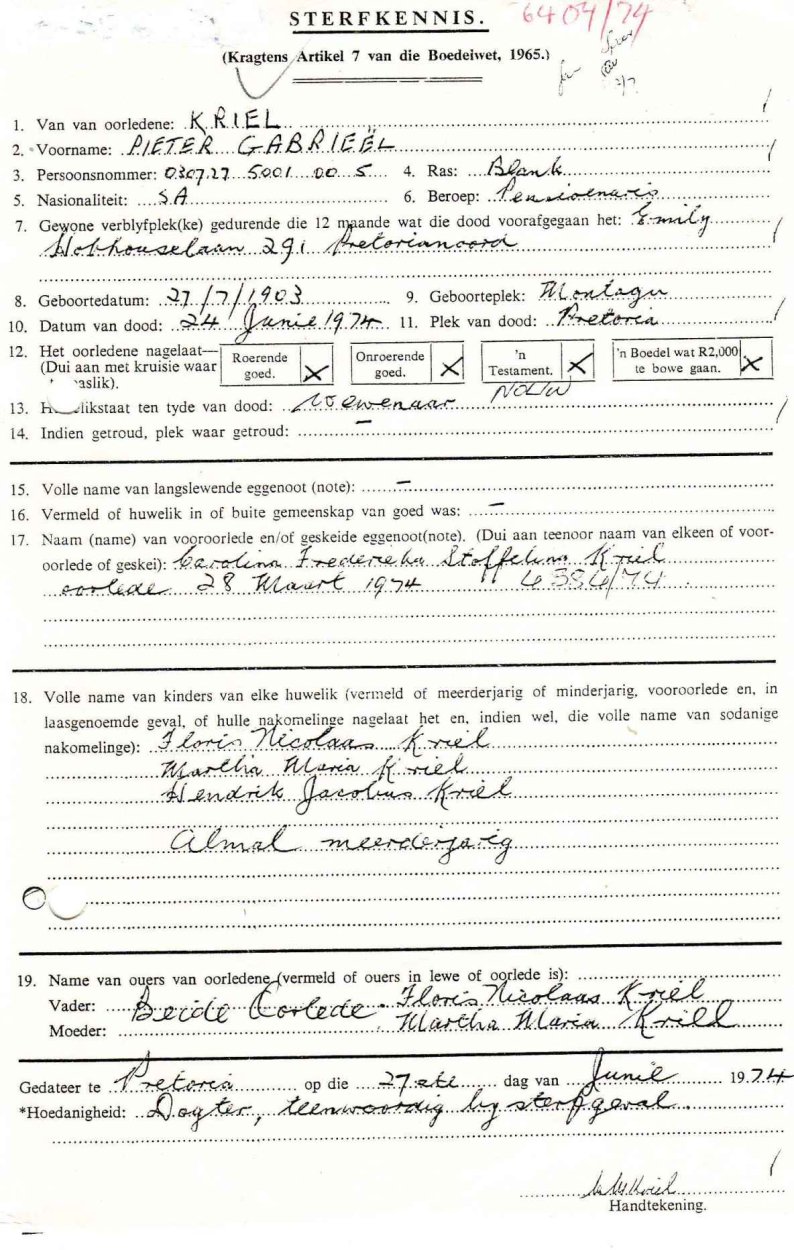 STERFKENNIS. 6404/74
(Kragtens Artikel 7 van die Boedelwet, 1965.)
1. Van van oorledene: KRIEL
2. Voorname: PIETER GABRIEËL
3. Persoonsnommer: 030727 5001 00 5 4. Ras: Blank
5. Nasionaliteit: SA 6. Beroep: Pensioenaris
7. Gewone verblyfplek(ke) gedurende die 12 maande wat die dood voorafgegaan het: Emily
Hobhouselaan 291 Pretorianoord
8. Geboortedatum: 27/7/1903 9. Geboorteplek: Montagu
10. Datum van dood: 24 Junie 1974 11. Plek van dood: Pretoria
12. Het oorledene nagelaat— Roerende goed. X Onroerende goed. X 'n Testament. X 'n Boedel wat R2,000 te bowe gaan. X
(Dui aan met kruisie waar
aslik).
NOUW
13. H likstaat ten tyde van dood: Wewenaar
14. Indien getroud, plek waar getroud: –
15. Volle name van langslewende eggenoot (note): –
16. Vermeld of huwelik in of buite gemeenskap van goed was: –
17. Naam (name) van vooroorlede en/of geskeide eggenoot(note). (Dui aan teenoor naam van elkeen of voor-
oorlede of geskei): Carolina Frederieka Stoffelina Kriel
oorlede 28 Maart 1974 4384/74
18. Volle name van kinders van elke huwelik (vermeld of meerderjarig of minderjarig, vooroorlede en, in
laasgenoemde geval, of hulle nakomelinge nagelaat het en, indien wel, die volle name van sodanige
nakomelinge): Floris Nicolaas Kriel
Martha Maria Kriel
Hendrik Jacobus Kriel
Almal meerderjarig
19. Name van ouers van oorledene (vermeld of ouers in lewe of oorlede is):
Vader: Beide Oorlede. Floris Nicolaas Kriel
Moeder: Martha Maria Kriel
Gedateer te Pretoria op die 27ste dag van Junie 1974
*Hoedanigheid: Dogter, teenwoordig by sterfgeval.
M M Kriel
Handtekening.